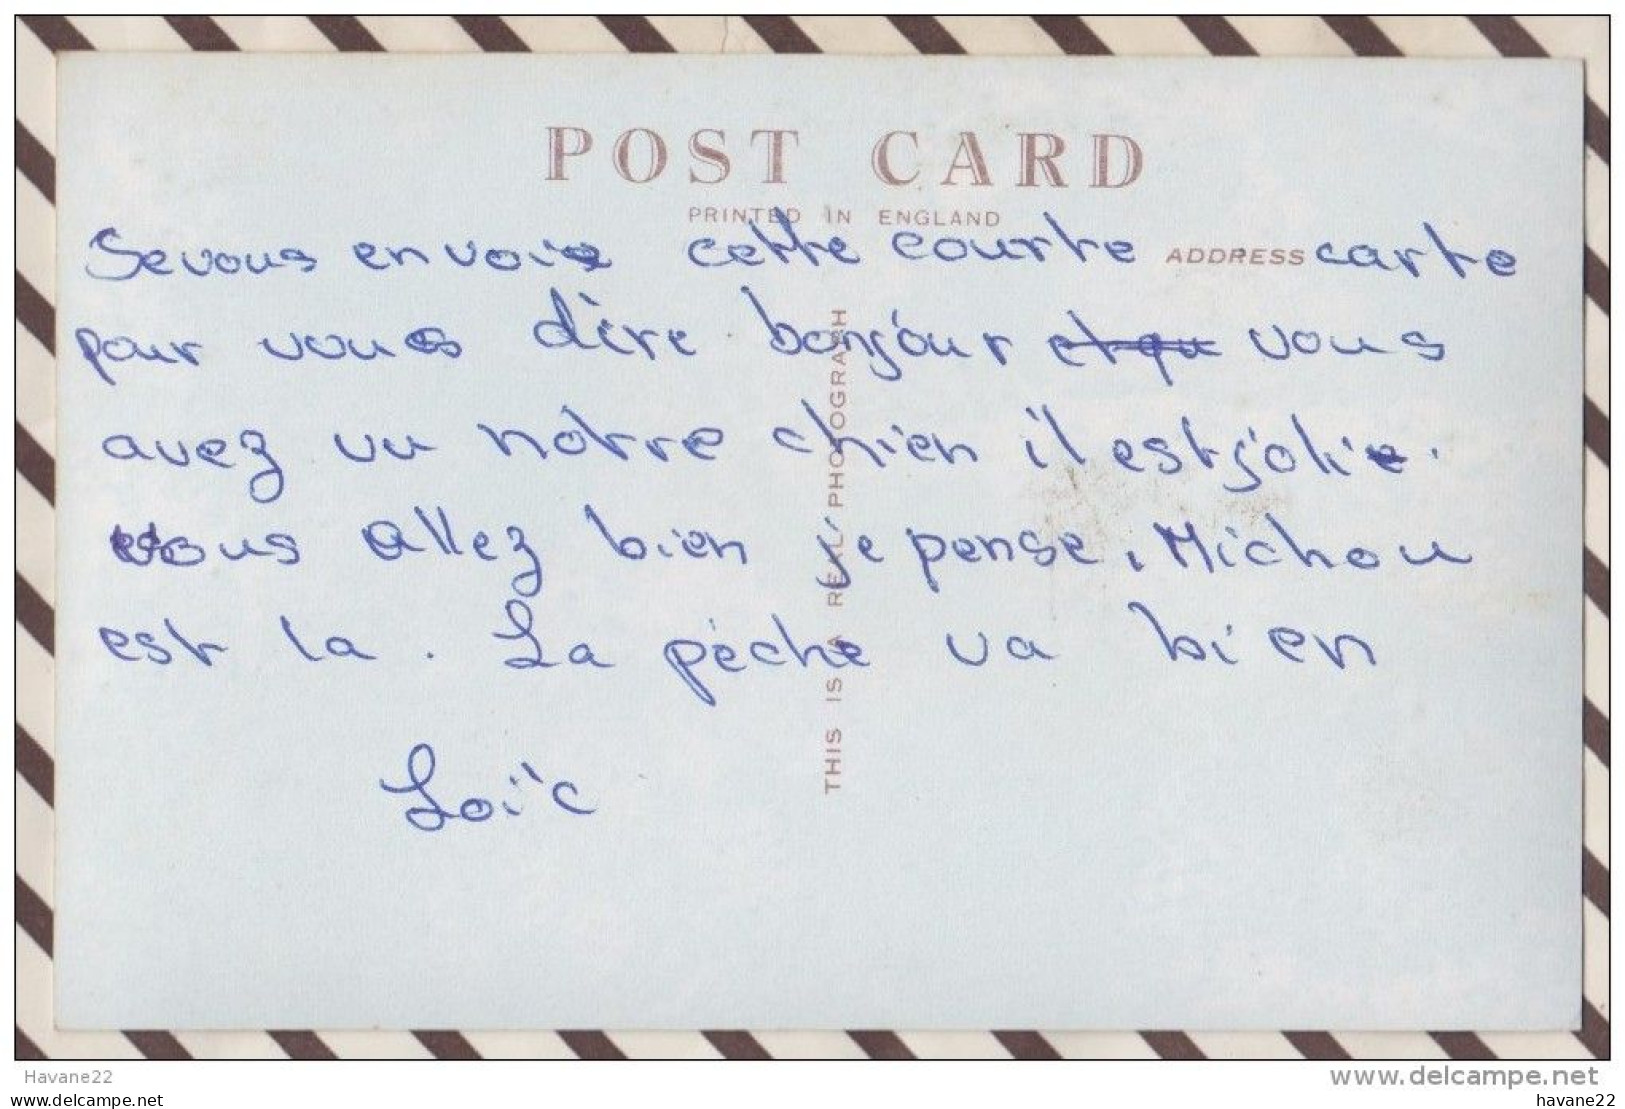 POST CARD
PRINTED IN ENGLAND
Se vous envoie cette courte ADDRESS carte
pour vous dire bonjour et qu vous
avez vu nôtre chien il est jolie.
vous allez bien je pense, Michou
est la. La pèche va bien
Loïc
THIS IS A REAL PHOTOGRAPH
Havane22
www.delcampe.net
havane22